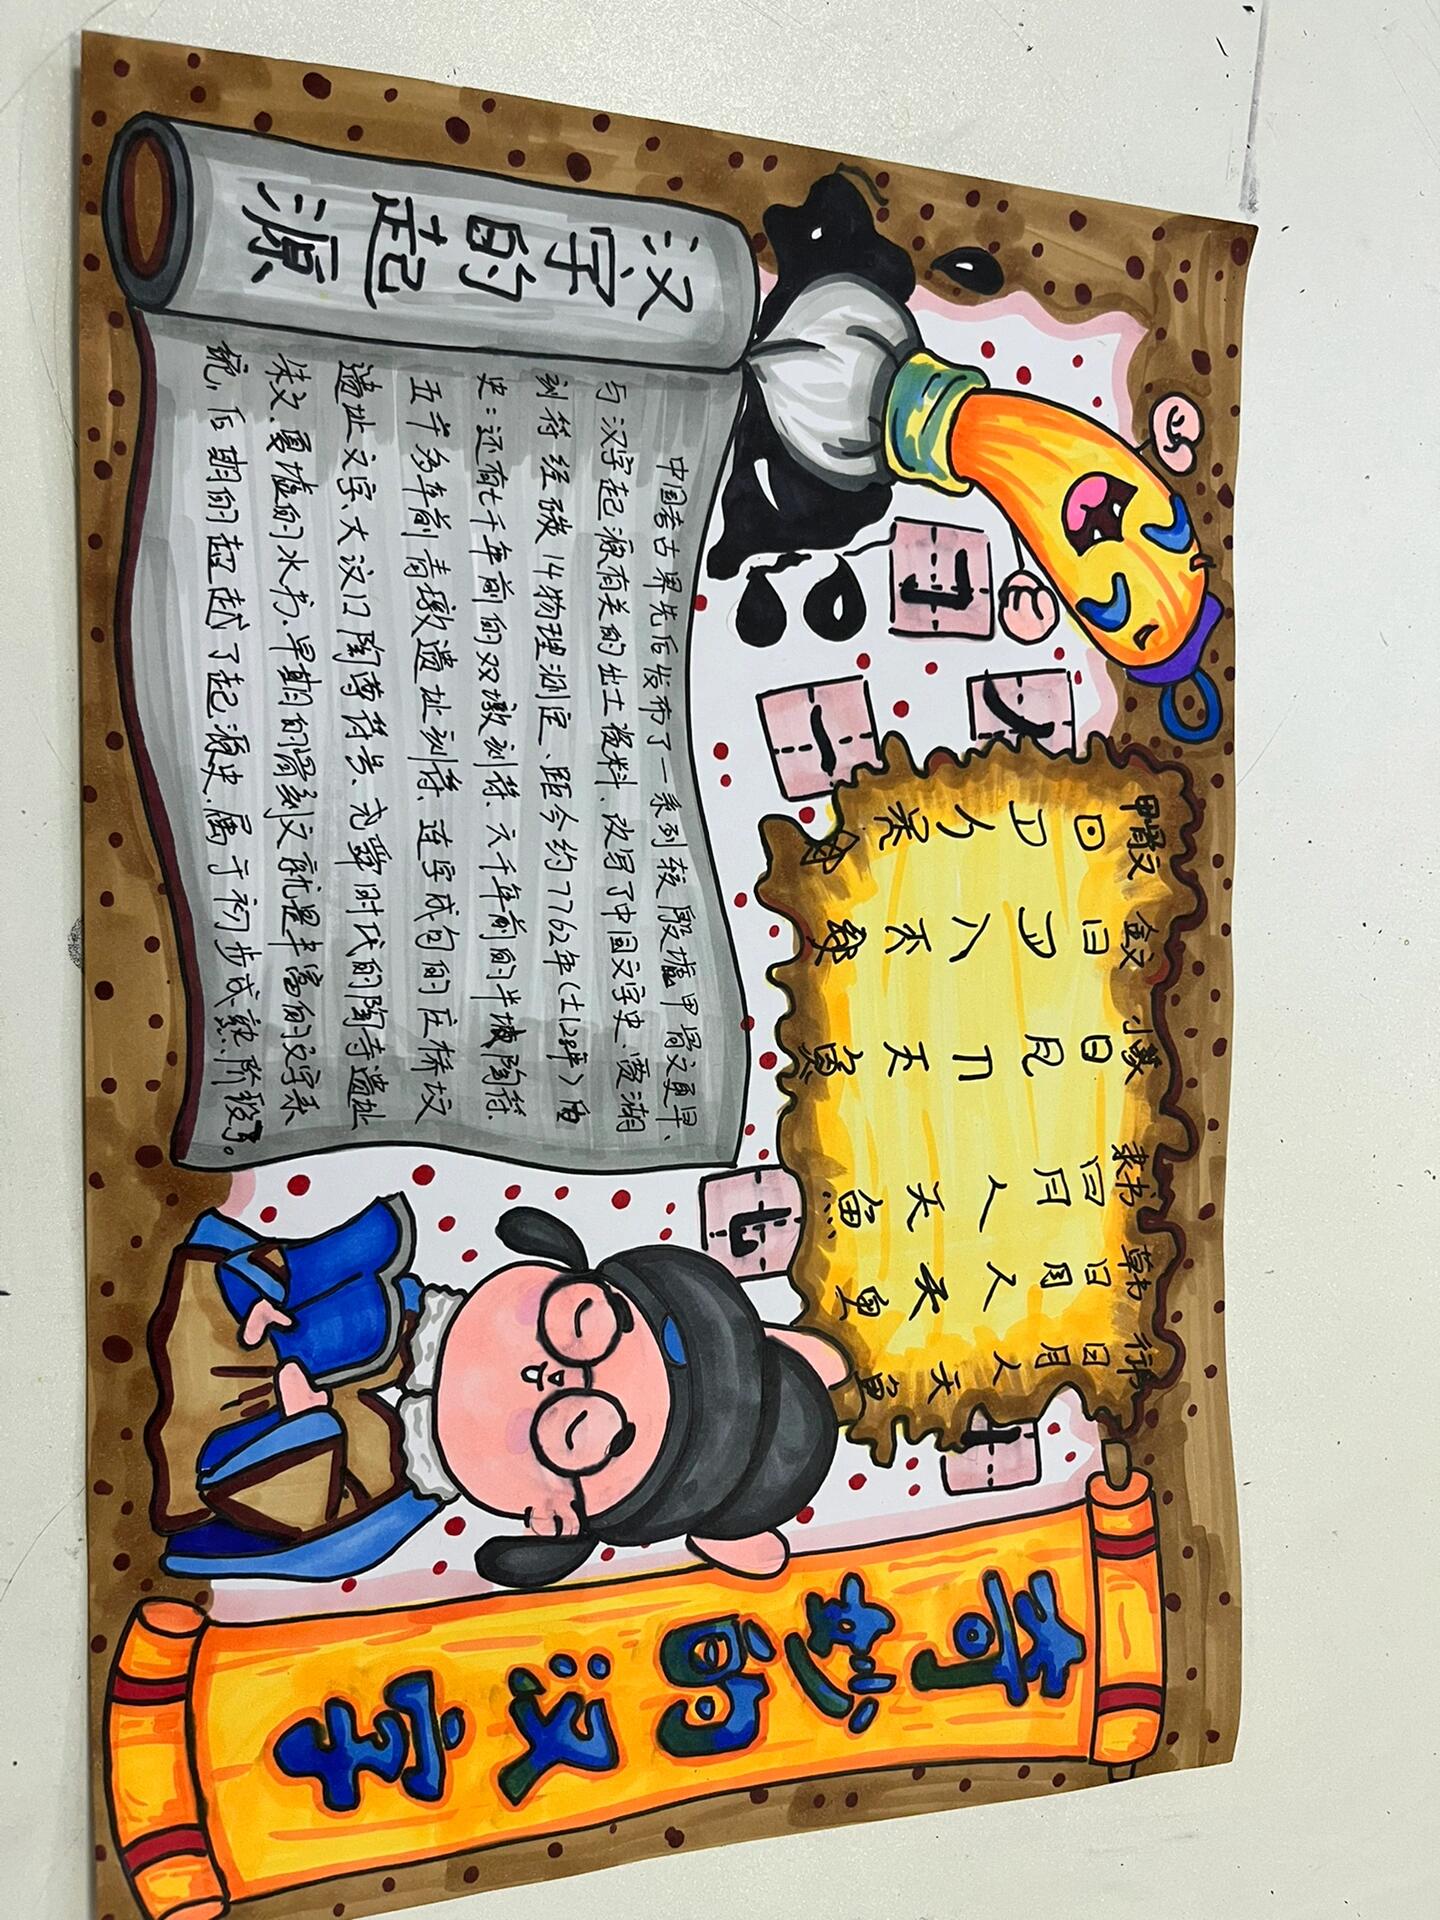 奇妙的汉字
汉字的起源
中国考古界先后发布了一系列较殷墟甲骨文更早、
与汉字起源有关的出土资料、改写了中国文字史、贾湖
刻符经碳14物理测定、距今约7762年(±128年)历
史:还有七千年前的双墩刻符、六千年前的半坡陶符.
五千多年前青墩遗址刻符、连字成句的庄桥坟
遗址文字、大汶口陶尊符号、尧舜时代的陶寺遗址
朱文.夏墟的水书.早期的骨刻文就是丰富的文字系
统,后期的超越了起源史.属于初步成熟阶段了。
甲骨文 金文 小篆 隶书 草书 行书
日 日 日 日
月 月 月
人 人 人 人
天 天 天 天
鱼
七